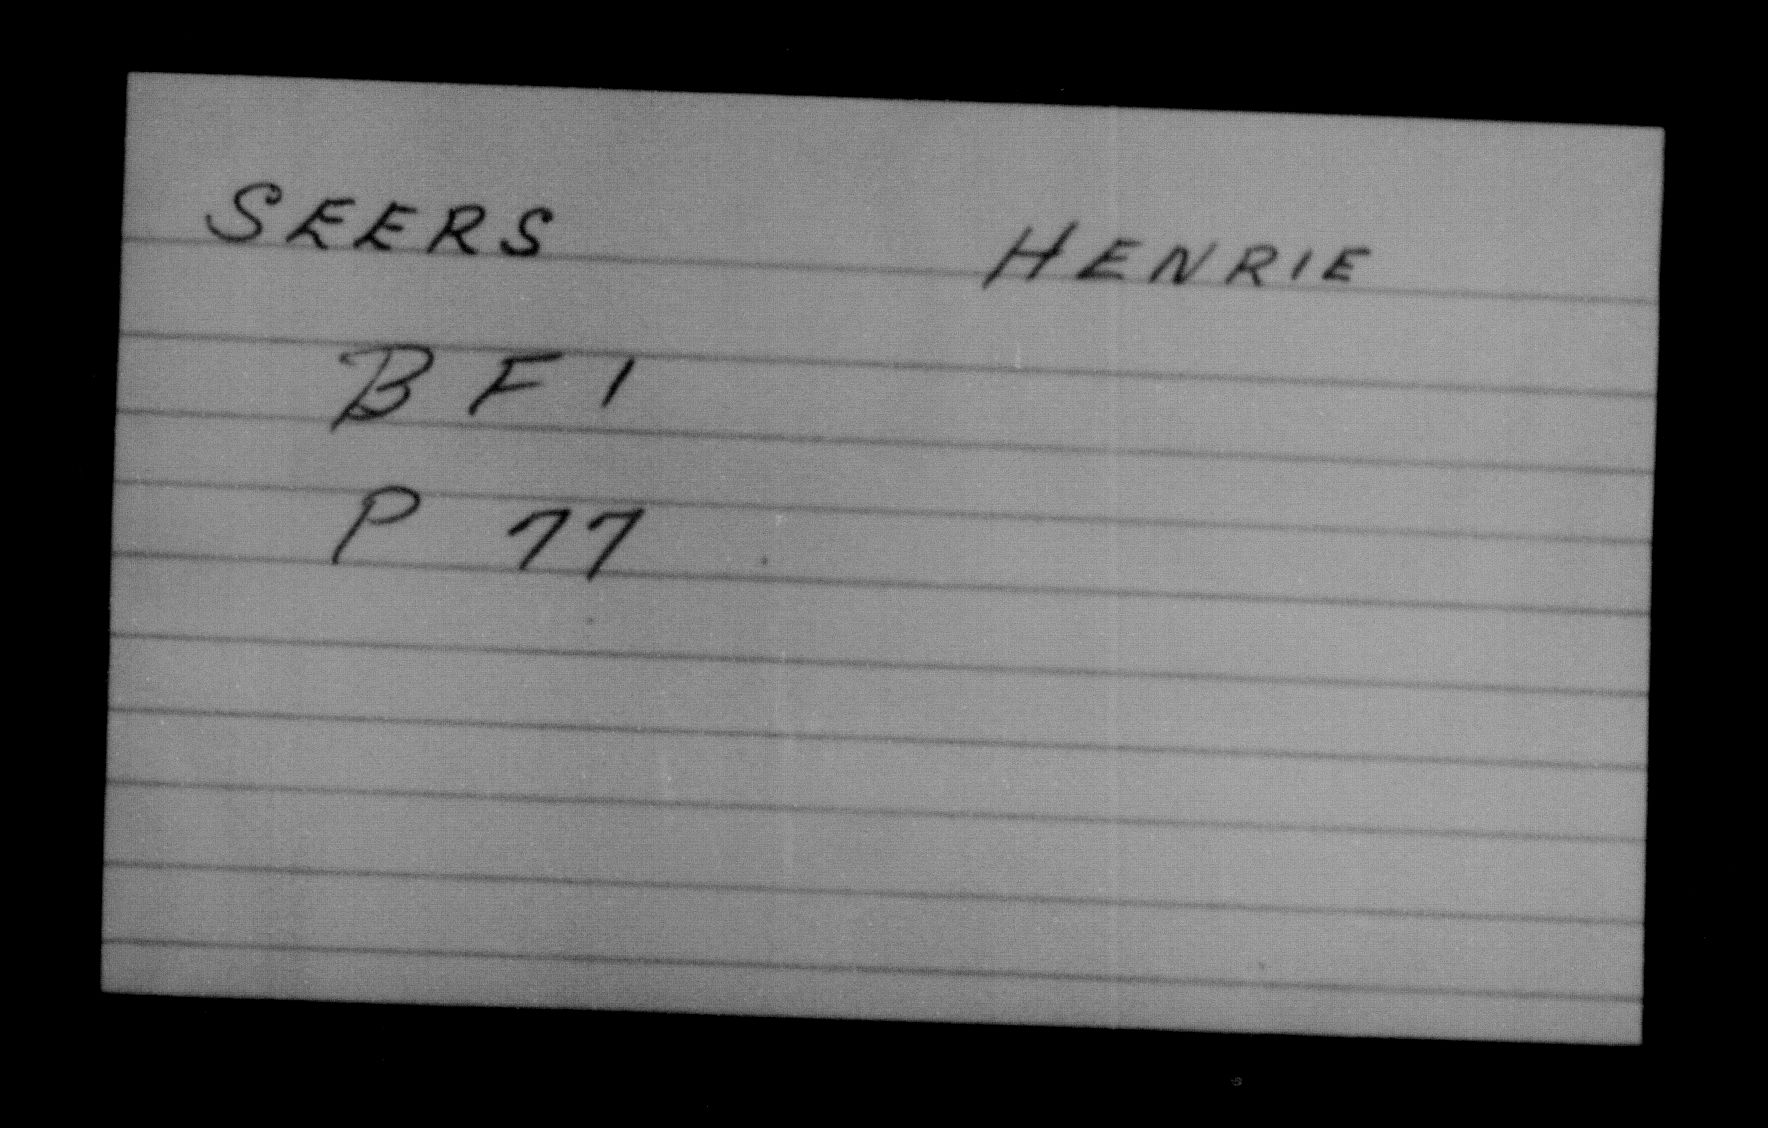 SEERS HENRIE
B F 1
P 77